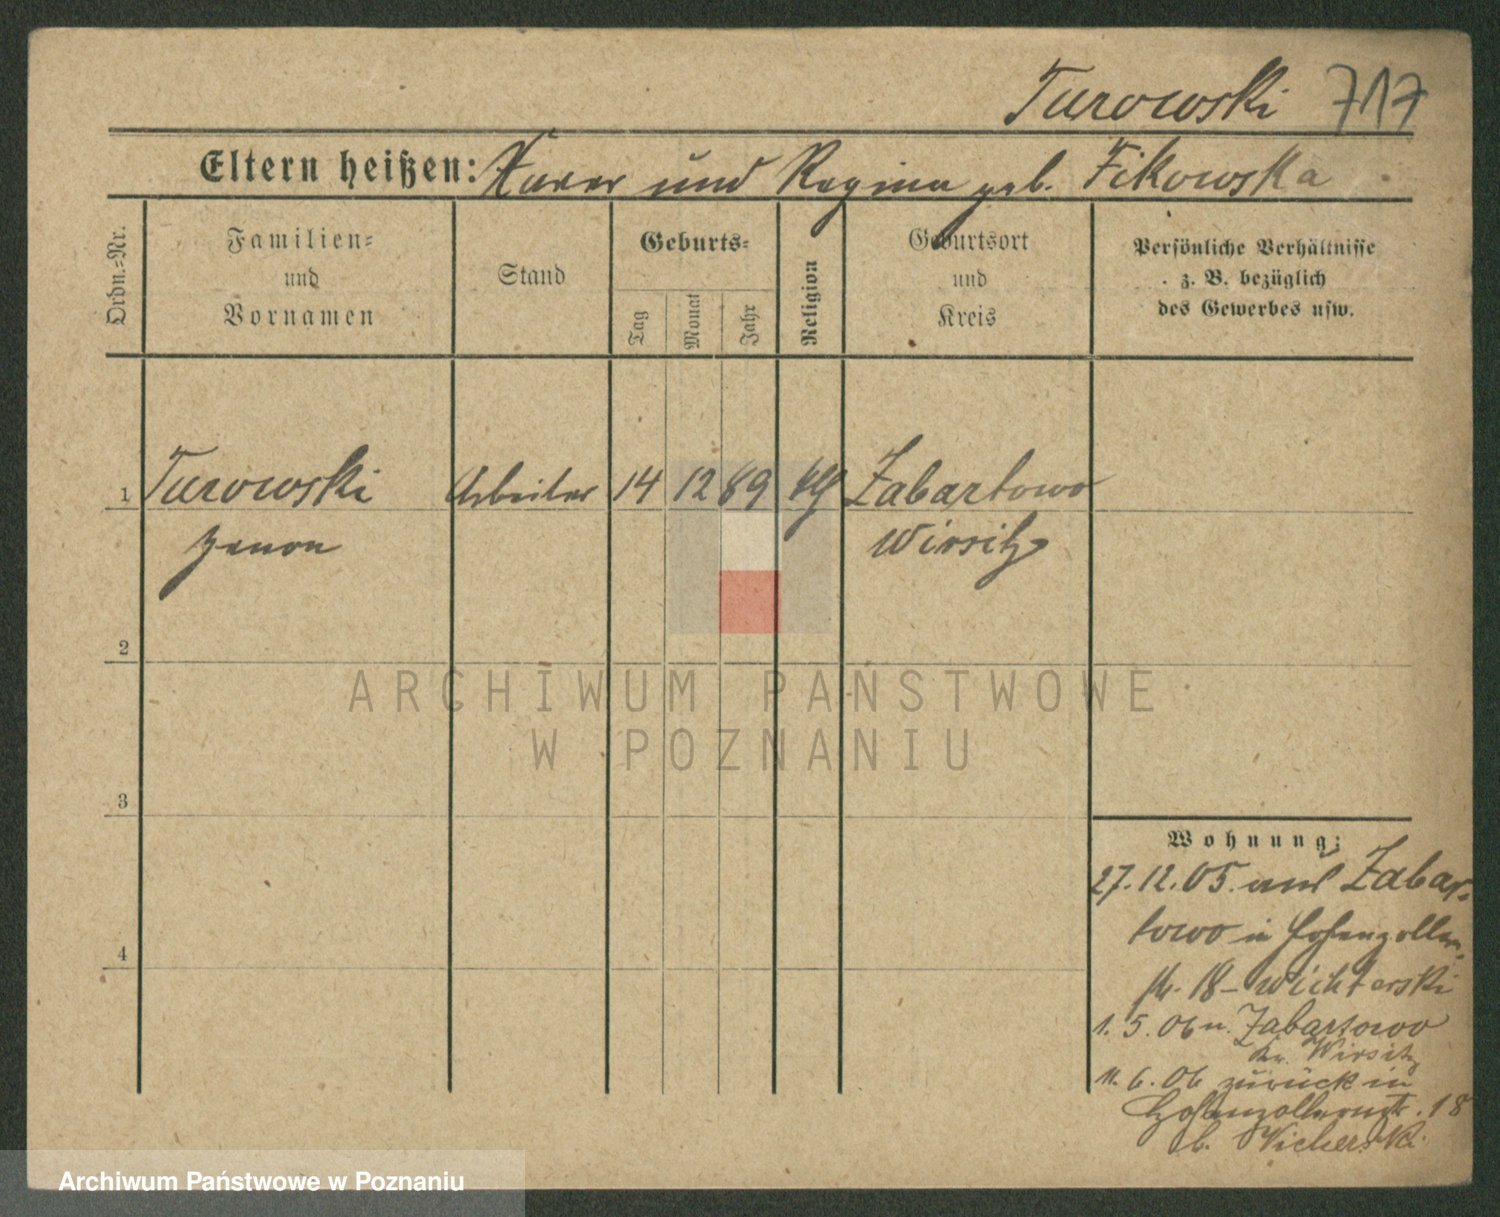 Turowski 717
Eltern heißen: Xaver und Regina geb. Fikowska
Ordn.-Nr.
Familien-
und
Vornamen
Stand
Geburts-
Tag
Monat
Jahr
Religion
Geburtsort
und
Kreis
Persönliche Verhältnisse
z. B. bezüglich
des Gewerbes usw.
1 Turowski Arbeiter 14 12 89 Zabartowo
Zenon Wirsitz
2
3
4
ARCHIWUM PAŃSTWOWE
W POZNANIU
Wohnung:
27.12.05. aus Zabar-
towo in Hohenzollern-
str. 18 - Wichterski
1. 5. 06 n. Zabartowo
Kr. Wirsitz
11. 6. 06 zurück in
Hohenzollernstr. 18
b. Wicherski.
Archiwum Państwowe w Poznaniu